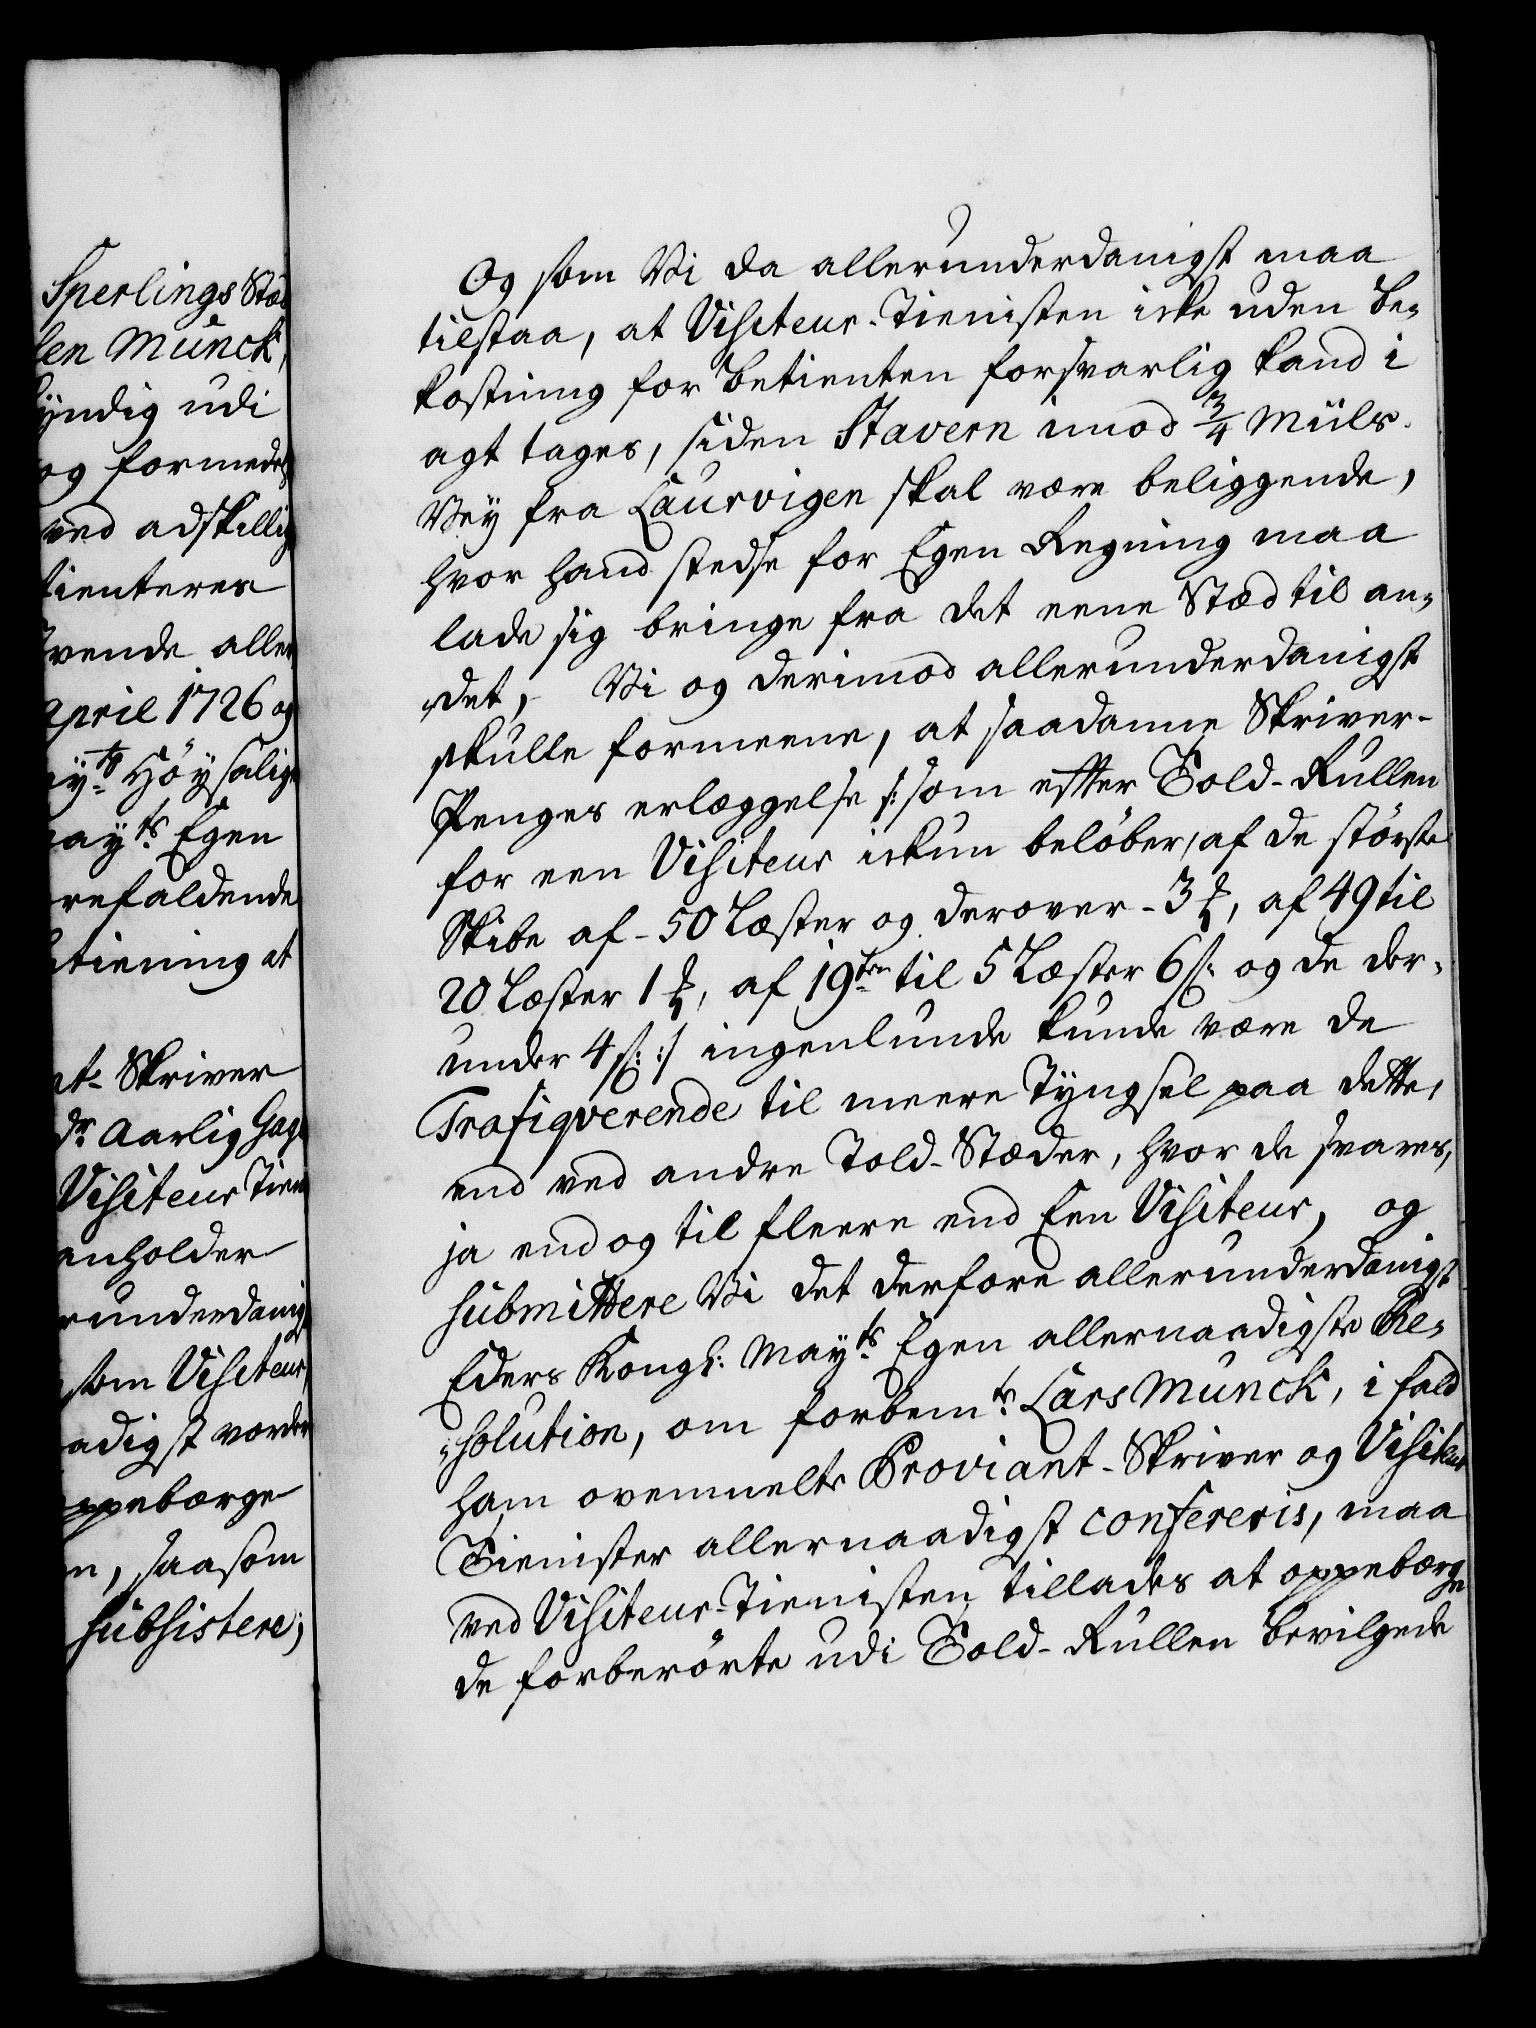 Sperlings Stæd
sen Munck,
kyndig udi
og formedelst
ved adskillig
tienteres
vende aller
April 1726 og
ayts Höysalig
Mayts Egen
refaldende
tiening at
nt-Skriver
dr Aarlig Gage
Visiteur Tien
enholder
runderdanig
som Visiteur
adigst vorder
oppebærge
n, saasom
subsistere;
Og som Vi da allerunderdanigst maa
tilstaa, at Visiteur-Tienisten icke uden be-
kostning for Betienten forsvarlig kand i
agt tages, siden Stavern imod 3/4 Miils
Vey fra Laurvigen skal være beliggende,
hvor hand stedse for Egen Regning maa
lade sig bringe fra det eene Stæd til an-
det, Vi og derimod allerunderdanigst
skulle formeene, at saadanne Skriver-
Penges erlæggelse /: som efter Told-Rullen
for een Visiteur ickun beløber, af de største
Skibe af - 50 Læster og derover - 3 ꝸ, af 49 til
20 Læster 1 ꝸ, af 19ten til 5 Læster 6 ß: og de der-
under 4 ß: :/ ingenlunde kunde være de
Trafiqverende til meere Tyngsel paa dette,
end ved andre Told-Stæder, hvor de svares,
ja end og til fleere end Een Visiteur, og
submittere Vi det derfore allerunderdanigst
Eders Kongl: Mayts Egen allernaadigste Re-
solution, om forbemte Lars Munck, i fald
ham ovenmelte Proviant-Skriver og Visiteur
Tienister allernaadigst confereris, maa
ved Visiteur-Tienisten tillades at oppebærge
de forberørte udi Told-Rullen bevilgede